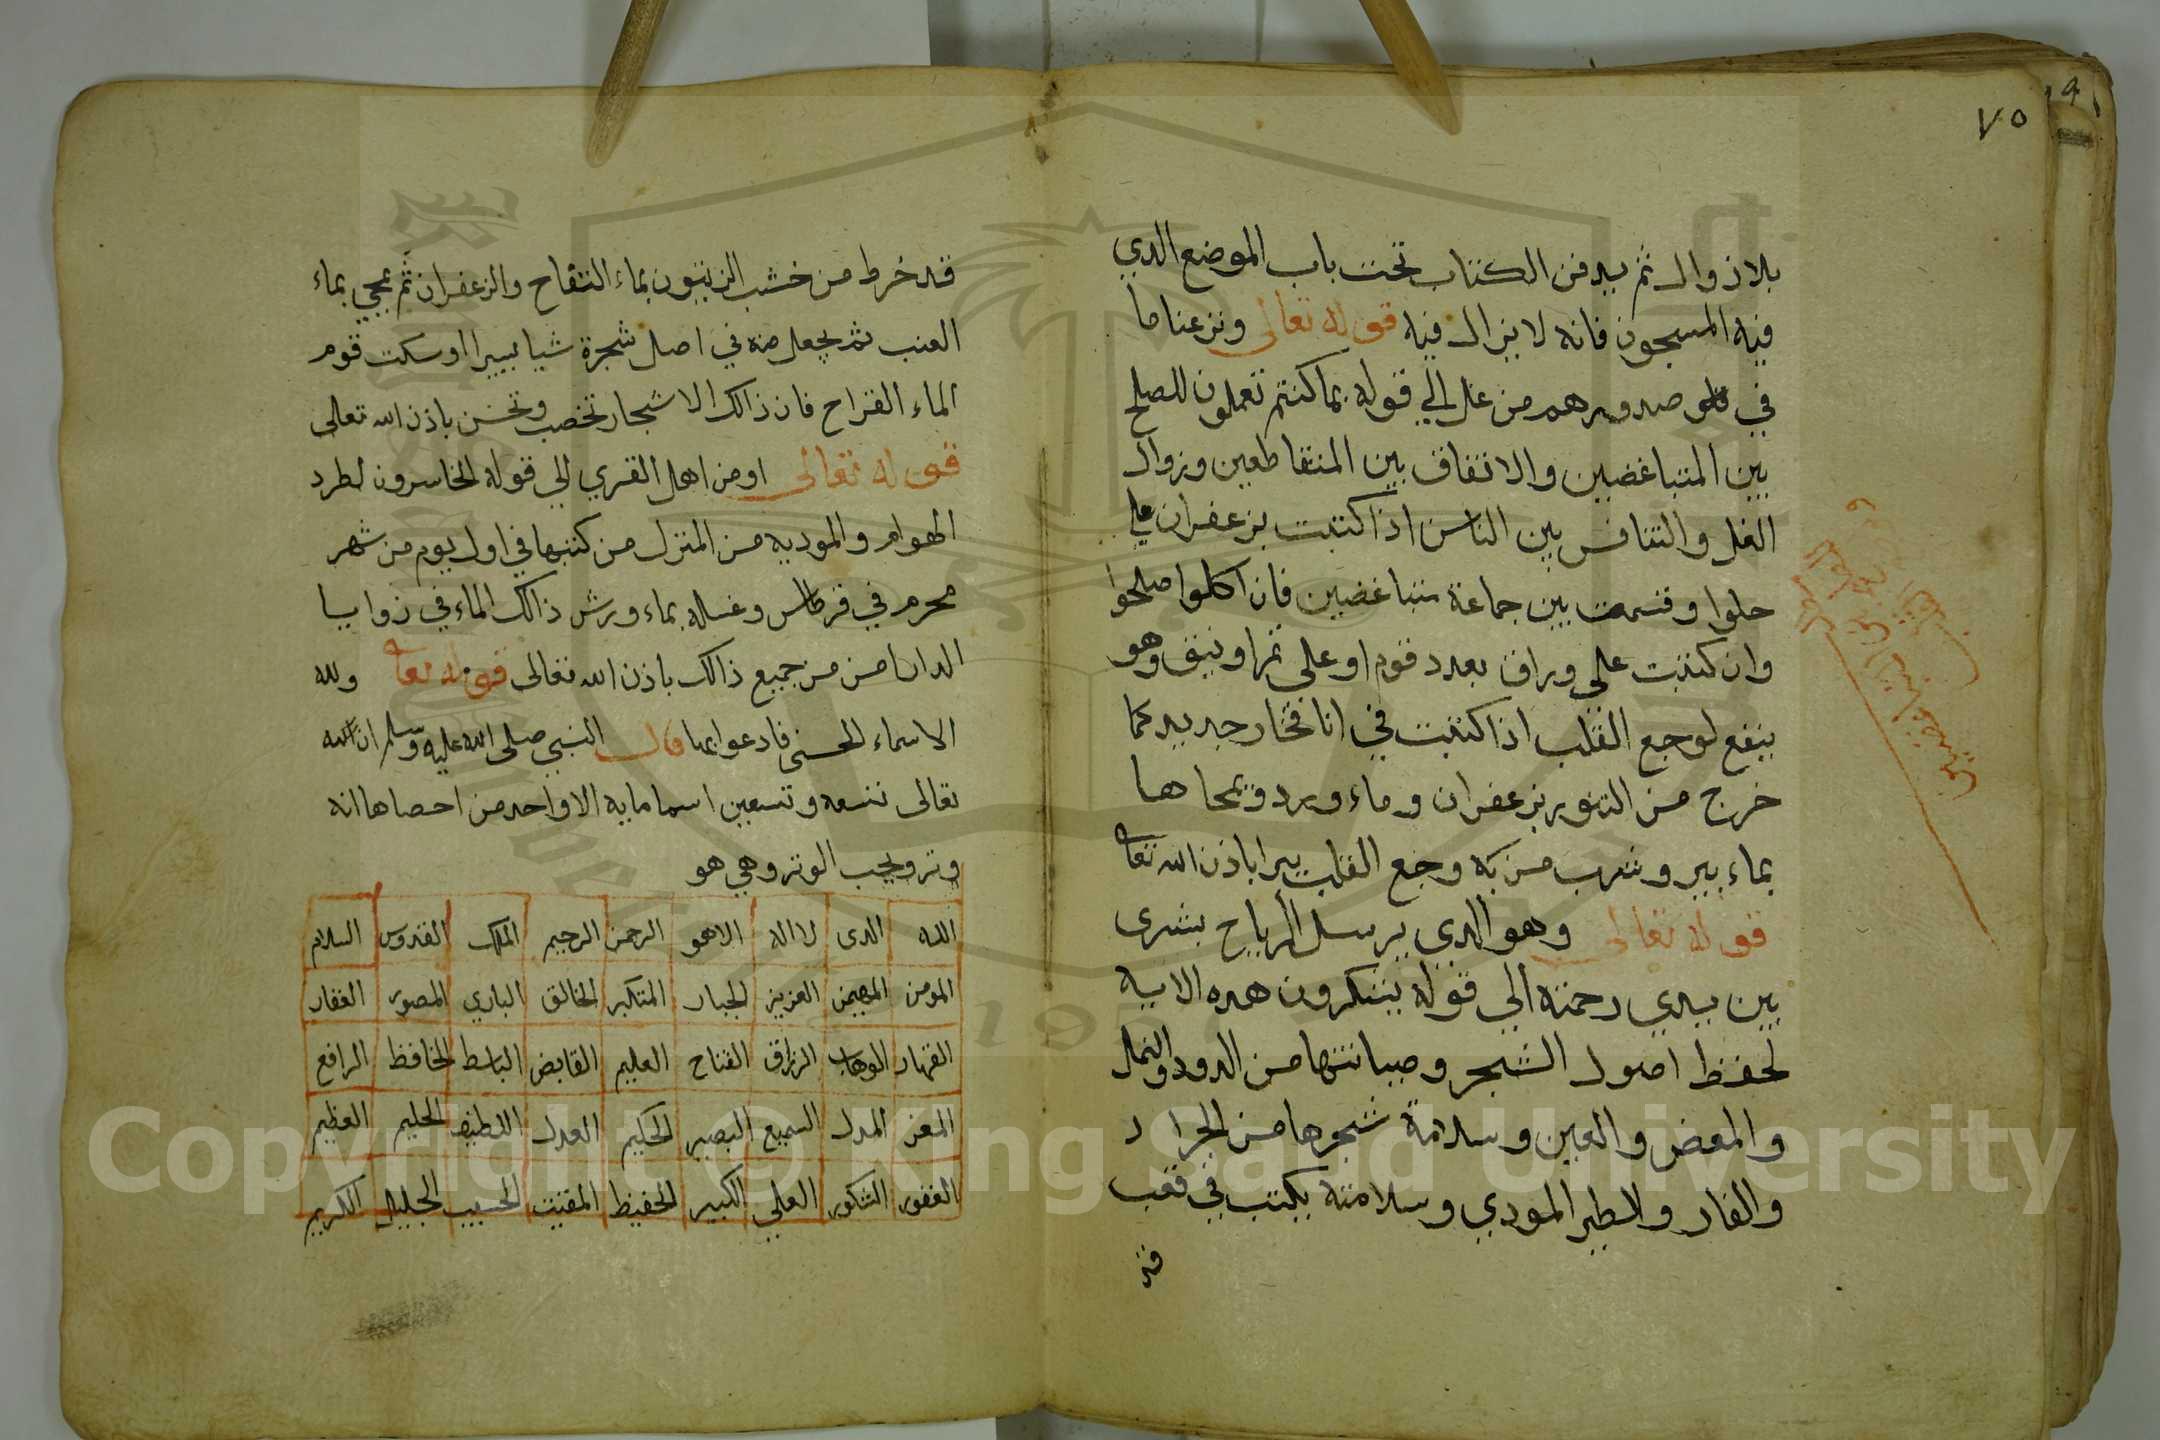 ٧٥
بلازوال ثم يدفن الكتاب تحت باب الموضع الدي
فيه المسجون فانه لا يزال فيه قوله تعالى ونزعنا ما
في صدورهم من غل الي قوله بما كنتم تعملون للصلح
بين المتباغضين والاتفاق بين المتقاطعين وزوال
الغل والتنافس بين الناس اذا كتبت بزعفران علي
حلوا وقسمت بين جماعة متباغضين فان اكلوا صلحوا
وان كتبت علي وراق بعدد قوم او علي تمر او نبق وهو
ينفع لوجع القلب اذا كتبت في انا فخار جديد كما
خرج من التنور بزعفران وماء ورد ومحاها
بماء بير وشرب من به وجع القلب يبرا باذن الله تعا
قوله تعالى وهو الدي يرسل الرياح بشرى
بين يدي رحمته الي قوله يشكرون هده الايه
لحفظ اصول الشجر وصيانتها من الدود والنمل
والمعض والعين وسلامة شجرها من الجراد
والفار والطير المودي وسلامته يكتب في قعب
قد
قد خرط من خشب الزيتون بماء التفاح والزعفران ثم يمحي بماء
العنب ثم يجعل منه في اصل شجرة شيا يسيرا او سكت قوم
الماء القراح فان ذالك الاشجار تخصب وتحسن باذن الله تعالى
قوله تعالى او من اهل القري الي قوله الخاسرون لطرد
الهوام والموديه من المنزل من كتبها في اول يوم من شهر
محرم في قرطاس وغسله بماء ورش ذالك الماء في زوايا
الدار امن من جميع ذالك باذن الله تعالى قوله تعا ولله
الاسماء الحسنى فادعوا بها قال النبي صلى الله عليه وسلم ان لله
تعالى تسعه وتسعين اسما مايه الا واحد من احصاها انه
وتر ويحب الوتر وهي هو
الله الدى لا اله الا هو الرحمن الرحيم الملك القدوس السلام
المومن المهيمن العزيز الجبار المتكبر الخالق الباري المصور الغفار
القهار الوهاب الرزاق الفتاح العليم القابض الباسط الخافظ الرافع
المعز المدل السميع البصير الحكيم العدل اللطيف الحليم العظيم
الغفور الشكور العلي الكبير الحفيظ المقيت الحسيب الجليل الكريم
Copyright © King Saud University